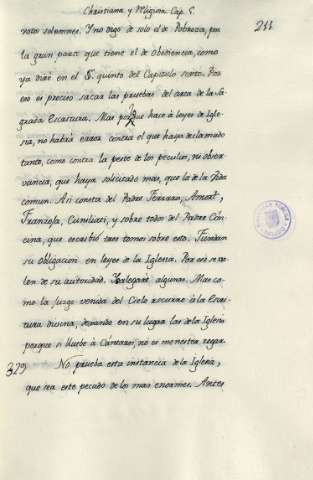 Christiana y Mística Cap. 5.
211
votos solemnes. Y no digo de solo el de Pobreza, por
la gran parte que tiene el de Obediencia, como
ya diré en el §. quinto del Capitulo sexto. Por
eso es preciso sacar las pruebas del arca de la Sa-
grada Escritura. Mas porque hace à leyes de Igle-
sia, no habrá error contra el que haya declamado
tanto, como contra la peste de los peculios, ni obser-
vancia, que haya solicitado mas, que la de la Vida
comun. Asi consta del Padre Ferraro, Amort,
Franzoja, Cuniliati, y sobre todos del Padre Con-
cina, que escribió tres tomos sobre esto. Fundan
su obligacion en leyes de la Iglesia. Por eso se va-
len de su autoridad. Yo alegaré algunas. Mas co-
mo la juzgo venida del Cielo recurriré à la Escri-
tura divina, dejando en su lugar las de la Iglesia
porque si lluebe à Cantaros, no es menester regar.
329 No prueba esta instancia de la Iglesia,
que sea este pecado de los mas enormes. Antes